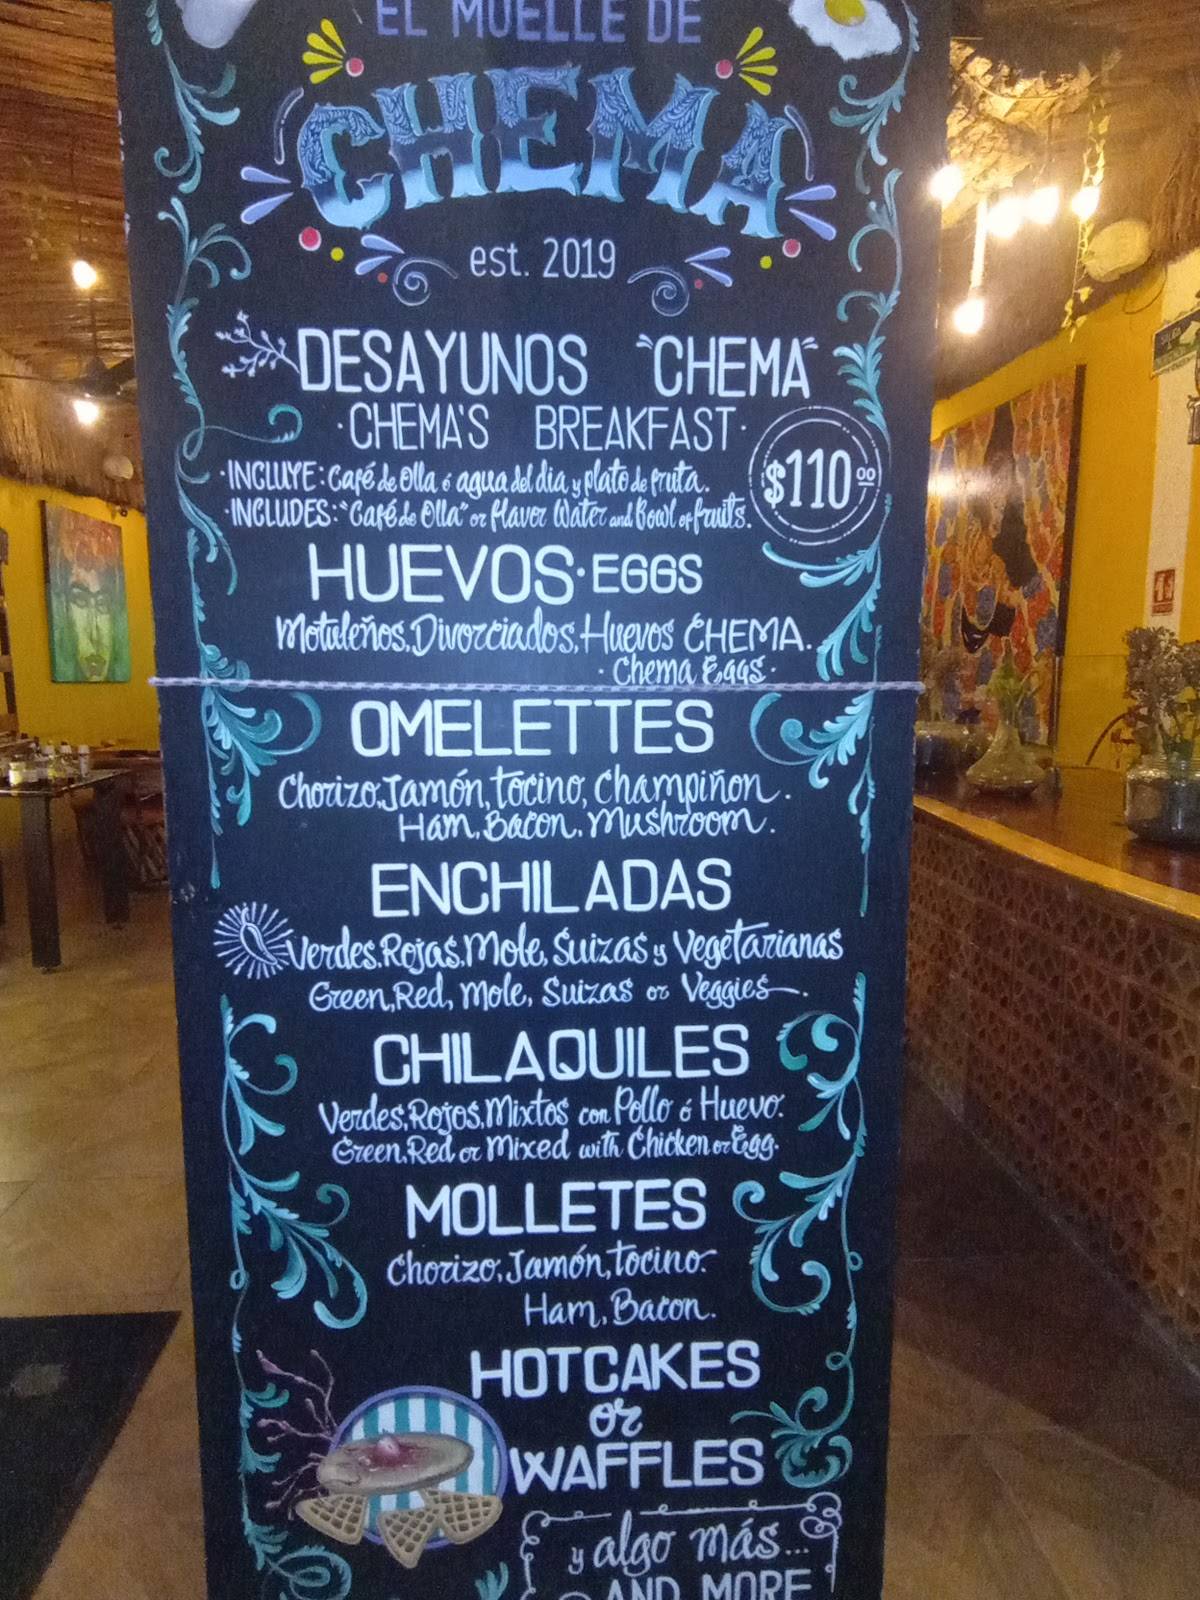 EL MUELLE DE
CHEMA
est. 2019
DESAYUNOS "CHEMA"
·CHEMA'S BREAKFAST·
·INCLUYE: Café de Olla ó agua del dia y plato de fruta.
·INCLUDES: "Café de Olla" or flavor Water and Bowl of fruits.
$110.00
HUEVOS·EGGS
Motuleños, Divorciados, Huevos CHEMA.
·Chema Eggs·
OMELETTES
Chorizo, Jamón, tocino, Champiñon.
Ham, Bacon, Mushroom.
ENCHILADAS
Verdes, Rojas, Mole, Suizas y Vegetarianas
Green, Red, Mole, Suizas or Veggies.
CHILAQUILES
Verdes, Rojos, Mixtos con Pollo ó Huevo.
Green, Red or Mixed with Chicken or Egg.
MOLLETES
Chorizo, Jamón, tocino.
Ham, Bacon.
HOTCAKES
or
WAFFLES
y algo más...
AND MORE